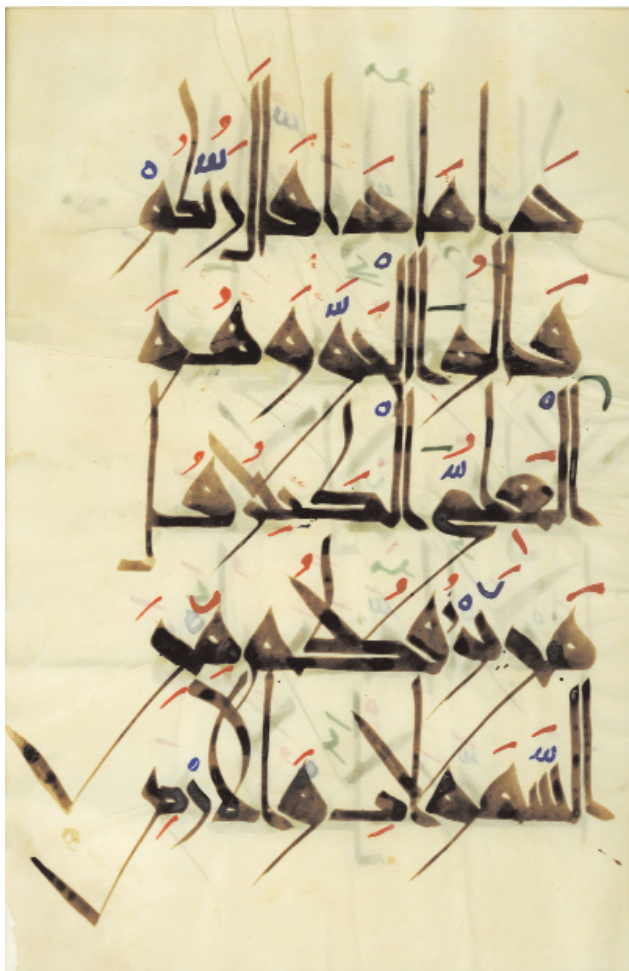 مَاذَا قَالَ رَبُّكُمْ
قَالُوا الْحَقَّ وَهُوَ
الْعَلِيُّ الْكَبِيرُ قُلْ
مَن يَرْزُقُكُم مِّنَ
السَّمَوَاتِ وَالْأَرْضِ